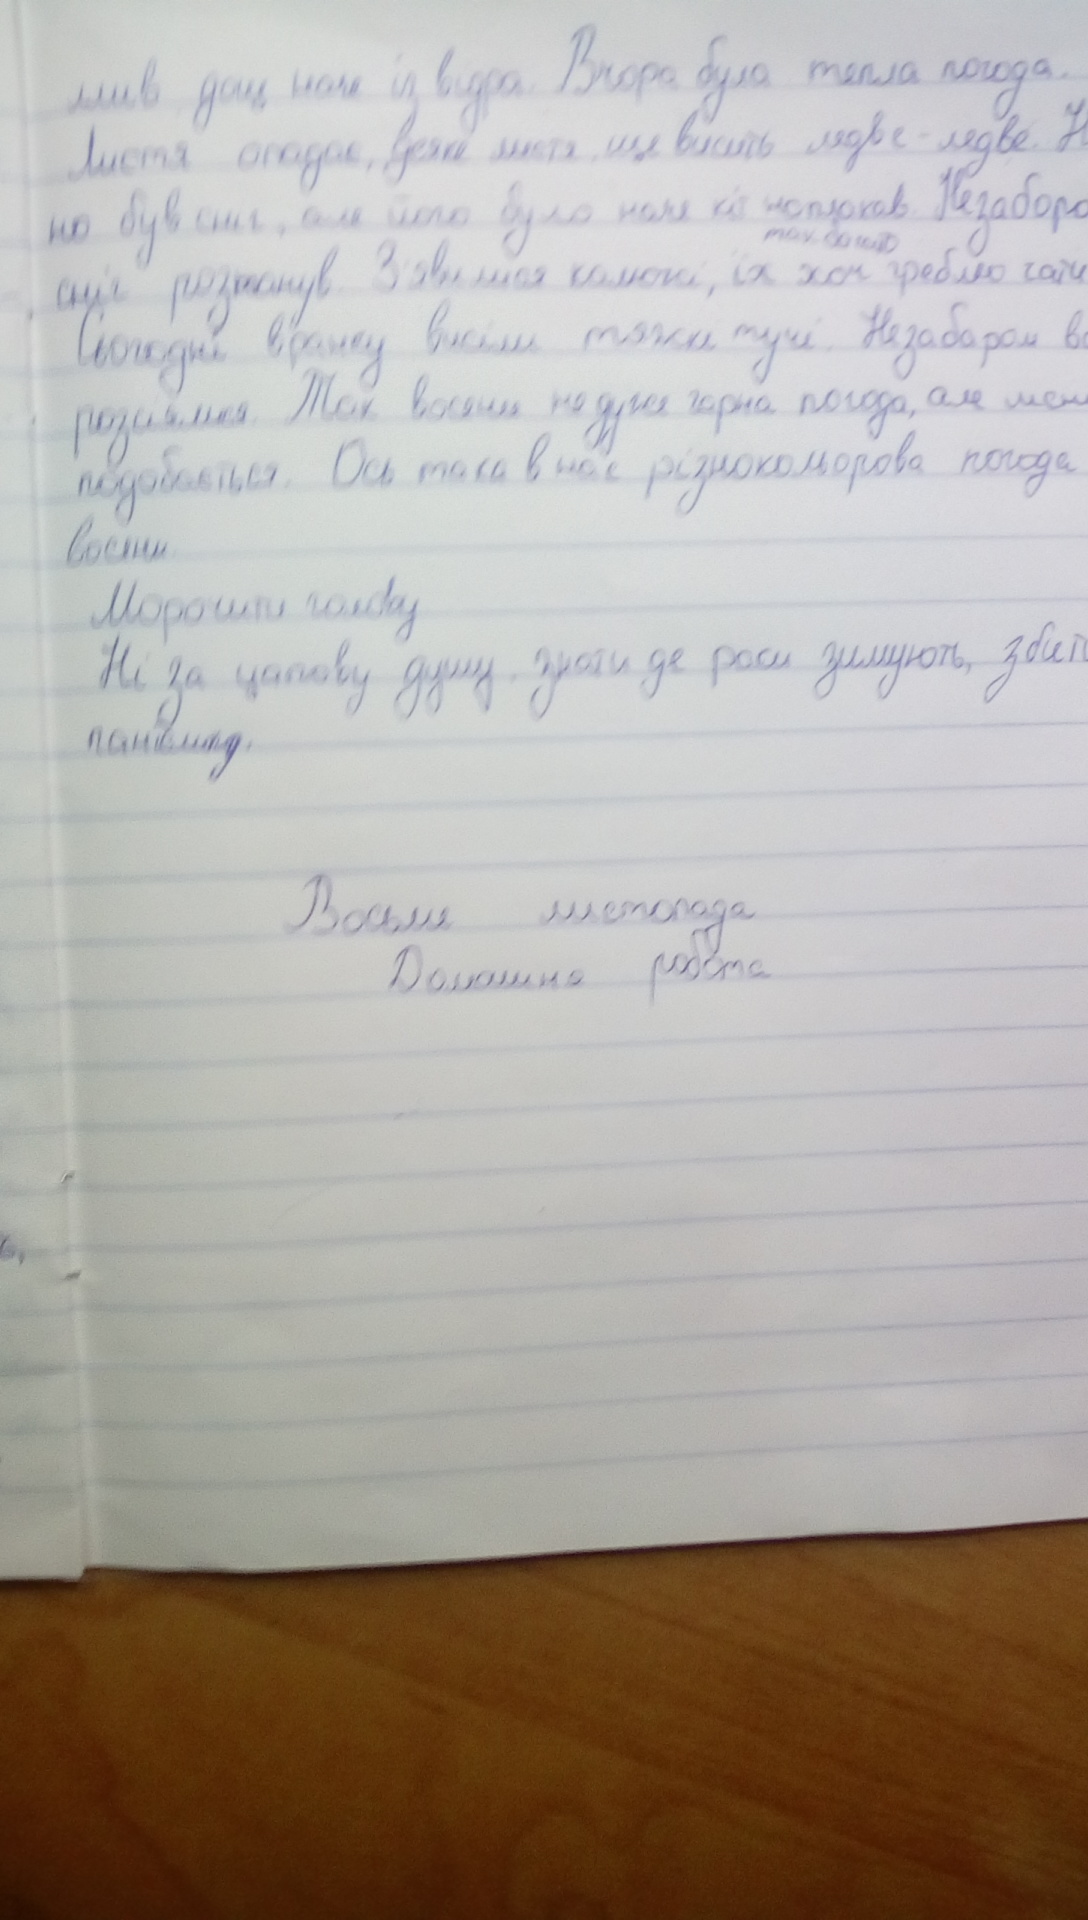 лив дощ наче із відра. Вчора була тепла погода.
Листя опадає, деяке листя ще висить ледве-ледве. Н
но був сніг, але його було наче кіт наплакав. Незабаро
так багато
сніг розтанув. З'явилися калюжі, їх хоч греблю гати
Сьогодні вранці висіли тяжкі тучі. Незабаром во
розсіялися. Так восени не дуже гарна погода, але мені
подобається. Ось така в нас різнокольорова погода
восени.
Морочити голову
Ні за цапову душу, знати де раки зимують, збити
пантелику.
Восьме листопада
Домашня робота
ь,